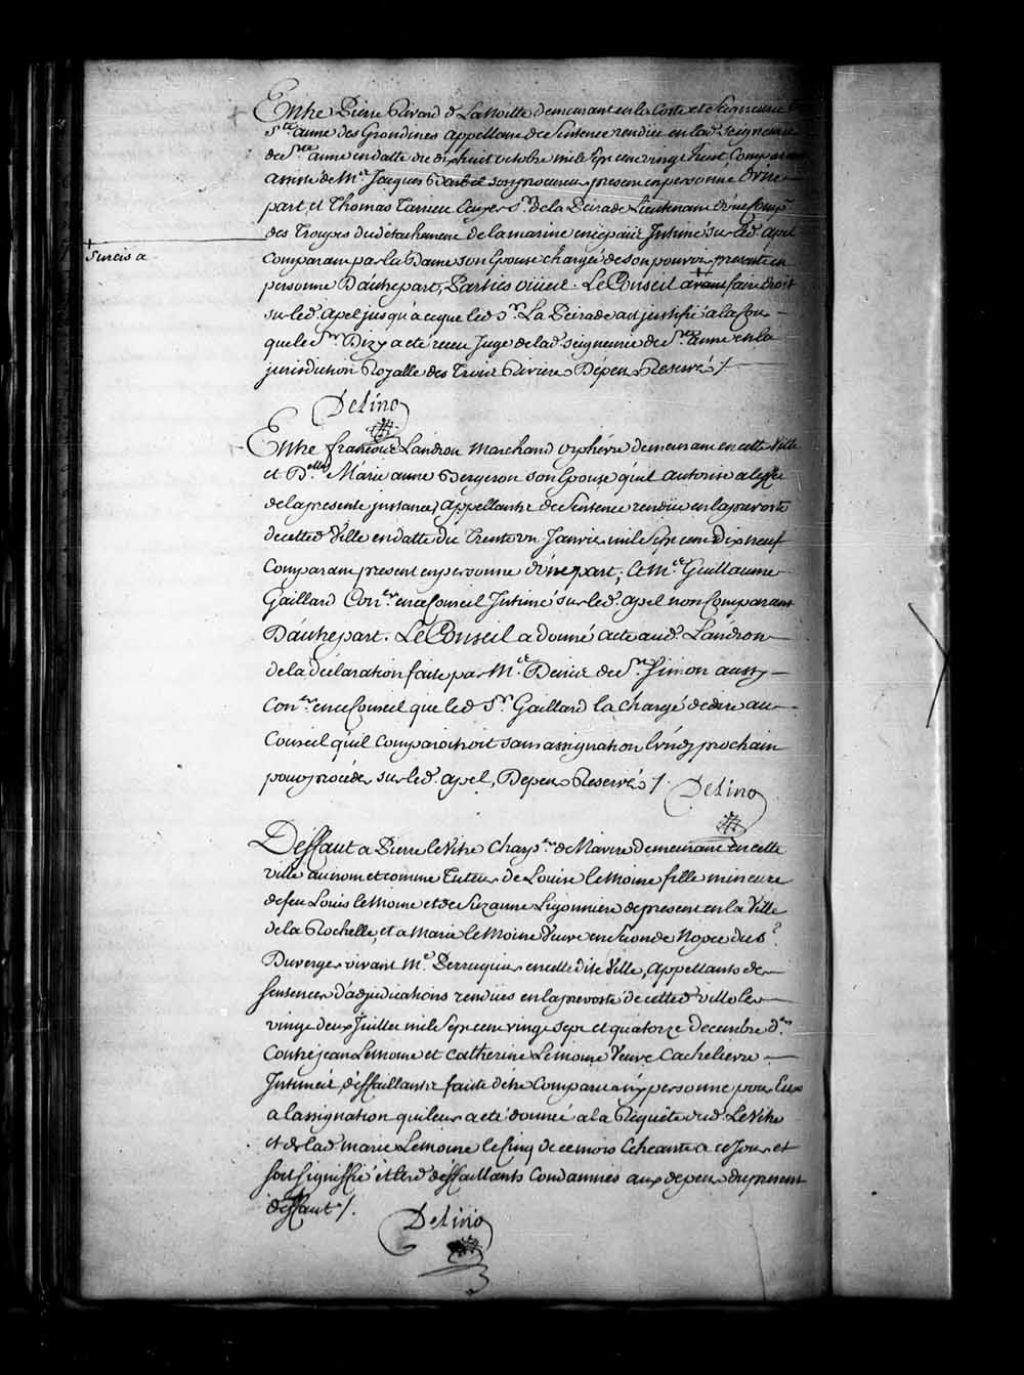 Entre Pierre Rivard d. La Noütte demeurant en la Coste et Seigneurie
Ste. anne des Grondines appellant de Sentence rendüe en lad. Seigneurie
de Ste. anne en datte du dixhuit octobre mile Sept cent vingt huit Comparant
assisté de Me. Jacques Barbel son procureur present en personne d'une
part, et Thomas Tarrieu Ecuyer Sr. de la Peirade Lieutenant d'une Comp.e
des Troupes du détachement de la marine en ce païs Intimé sur led. apel
Surcis a
Comparant par la Dame son Epouse chargée de son pouvoir presente en
personne D'autre part, Parties oüies. Le Conseil avant faire droit
sur led. apel jusqu'a ce que led. Sr. La Peirade ait justifié a la Cour
que le Sr. Dizy a eté receu Juge de lad. seigneurie de Ste. Anne en la
jurisdiction Royalle des Trois Rivieres Dépens Reservés /.
Delino
Entre francois Landron marchand orphévre demeurant en cette Ville
et Delle. Marie anne Bergeron son Epouse qu'il autorise a l'effet
de la presente instance, appellants de Sentence rendüe en la prevosté
de cetted. Ville en datte du Trente un Janvier mile Sept cent Dix neuf
Comparant present en personne d'une part, Et Me. Guillaume
Gaillard Coner. en ce Conseil Intimé sur led. apel non Comparant
D'autre part. Le Conseil a donné acte aud. Landron
de la déclaration faite par Me. Denis de St. Simon aussy
Coner. en ce Conseil que led. Sr. Gaillard l'a chargé de dire au
Conseil qu'il Comparoitroit sans assignation Lundy prochain
pour proceder sur led. apel, Depens Reservés /. Delino
Deffaut a Pierre le Vitre Charp.er de Navire demeurant en cette
ville au nom et comme Tuteur de Louise le Moine fille mineure
de feu Louis le Moine et de Suzanne Ligonniere de present en la Ville
de la Rochelle, et a Marie le Moine Veuve en Seconde Noces du S.
Duverger vivant Me. Perruquier en cette dite Ville, appellants de
Sentences d'adjudications rendües en la prevosté de cetted. ville les
vingt deux Juillet mile Sept cent vingt sept et quatorze decembre d.er
Contre jean Lemoine et Catherine Lemoine Veuve Cachelievre
Intimés, déffaillants faute d'être Comparu ny personne pour Eux
a l'assignation qui leur a eté donnée a la Requête dud. Le Vitre
et de lad. marie Lemoine le Cinq de ce mois Echeante a ce Jour et
soit signiffié et lesd. déffaillants Condamnés aux depens du present
déffaut /.
Delino